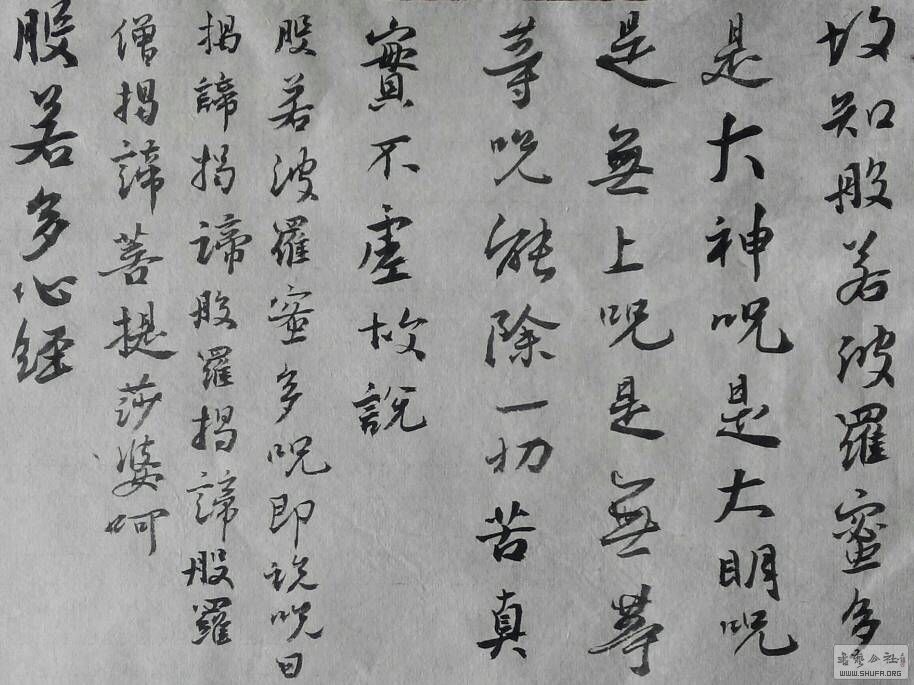 故知般若波羅蜜多
是大神咒是大明咒
是無上咒是無等
等咒能除一切苦真
實不虛故說
般若波羅蜜多咒即說咒曰
揭諦揭諦般羅揭諦般羅
僧揭諦菩提莎婆呵
般若多心經
書藝公社
WWW.SHUFA.ORG